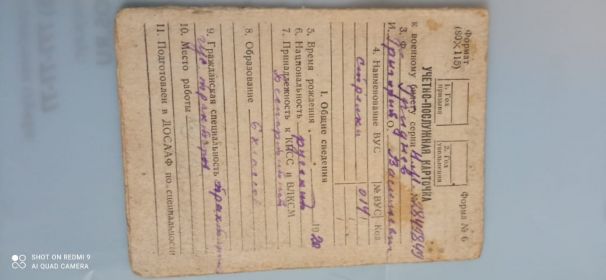 Формат
(80×115)
Форма № 6
1. Год
призыва
2. Год
увольнения
УЧЕТНО-ПОСЛУЖНАЯ КАРТОЧКА
к военному билету серии
3. Ф.
И. Григорий О. Васильевич
4. Наименование ВУС № ВУС Код
стрелки 014
1. Общие сведения
5. Время рождения 1920
6. Национальность русский
7. Принадлежность к КПСС и ВЛКСМ
Беспартийный
8. Образование 6 классов
9. Гражданская специальность
10. Место работы
11. Подготовлен в ДОСААФ по специальности
SHOT ON REDMI 9
AI QUAD CAMERA